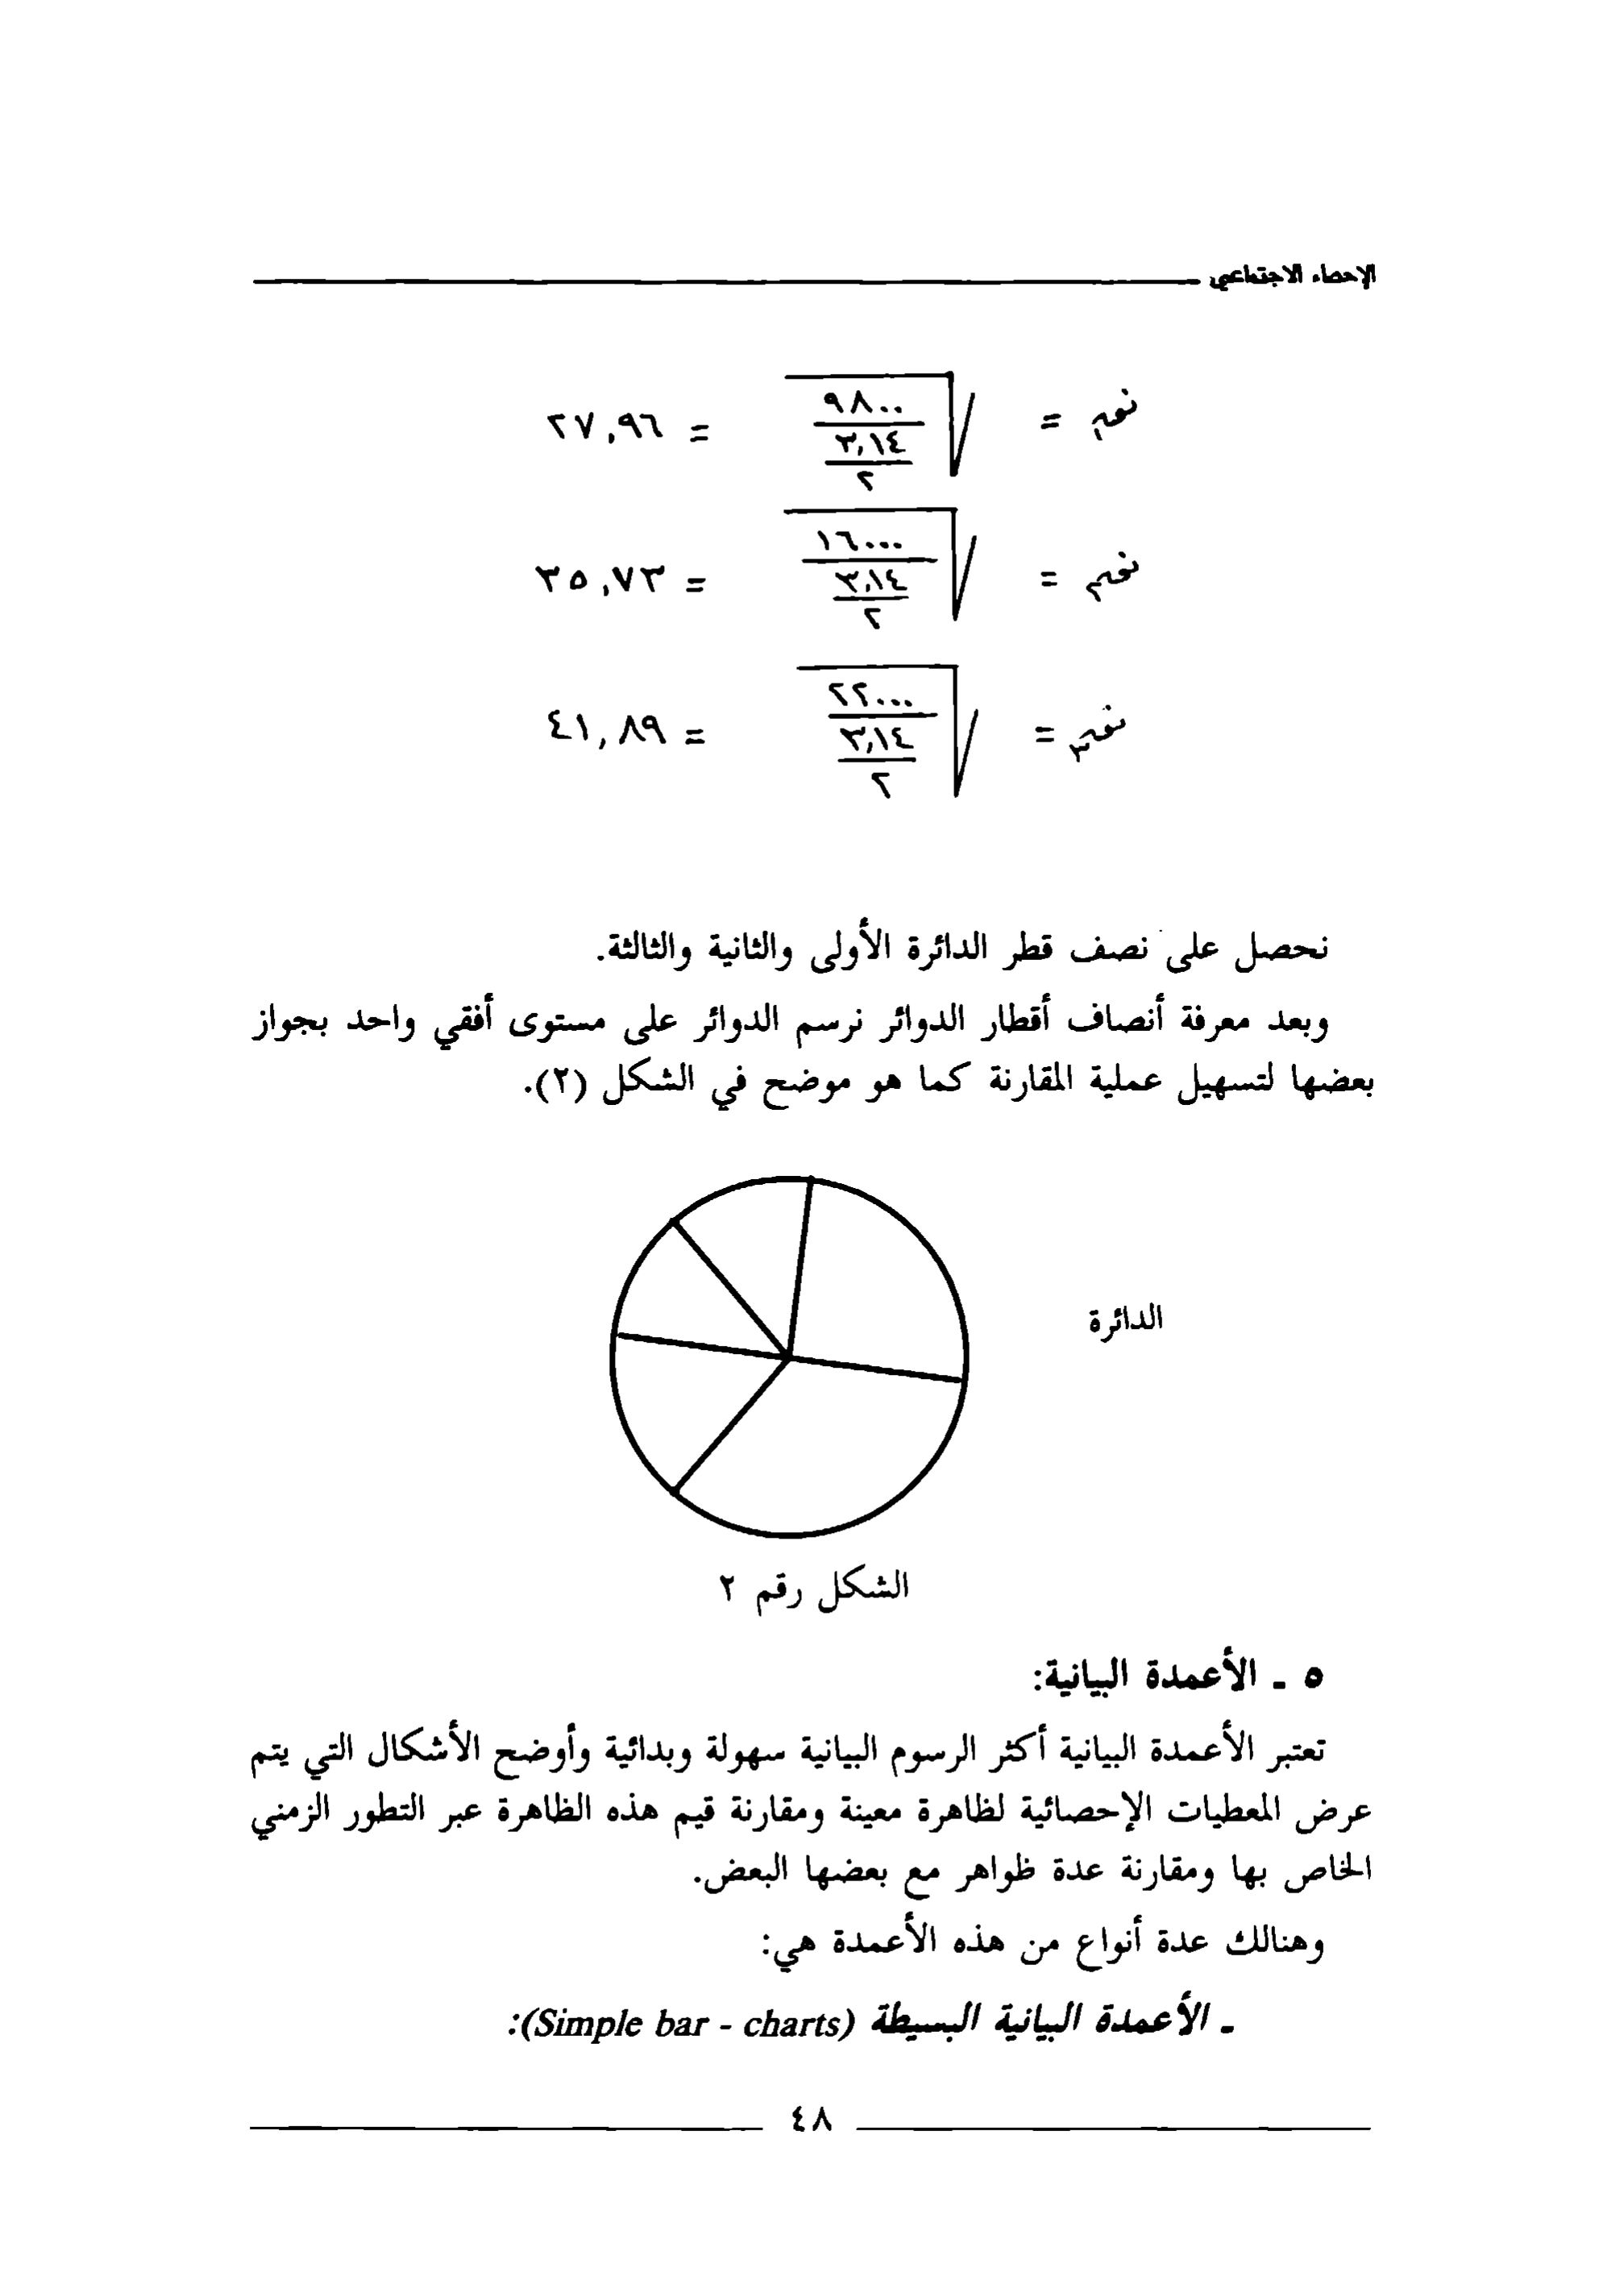 الإحصاء الاجتماعي
نق١ = √ ٩٨٠٠ / ٣,١٤ / ٢ = ٢٧,٩٦
نق٢ = √ ١٦٠٠٠ / ٣,١٤ / ٢ = ٣٥,٧٣
نق٣ = √ ٢٢٠٠٠ / ٣,١٤ / ٢ = ٤١,٨٩
نحصل على نصف قطر الدائرة الأولى والثانية والثالثة.
وبعد معرفة أنصاف أقطار الدوائر نرسم الدوائر على مستوى أفقي واحد بجواز
بعضها لتسهيل عملية المقارنة كما هو موضح في الشكل (٢).
الدائرة
الشكل رقم ٢
٥ ـ الأعمدة البيانية:
تعتبر الأعمدة البيانية أكثر الرسوم البيانية سهولة وبدائية وأوضح الأشكال التي يتم
عرض المعطيات الإحصائية لظاهرة معينة ومقارنة قيم هذه الظاهرة عبر التطور الزمني
الخاص بها ومقارنة عدة ظواهر مع بعضها البعض.
وهنالك عدة أنواع من هذه الأعمدة هي:
ـ الأعمدة البيانية البسيطة (Simple bar - charts):
٤٨